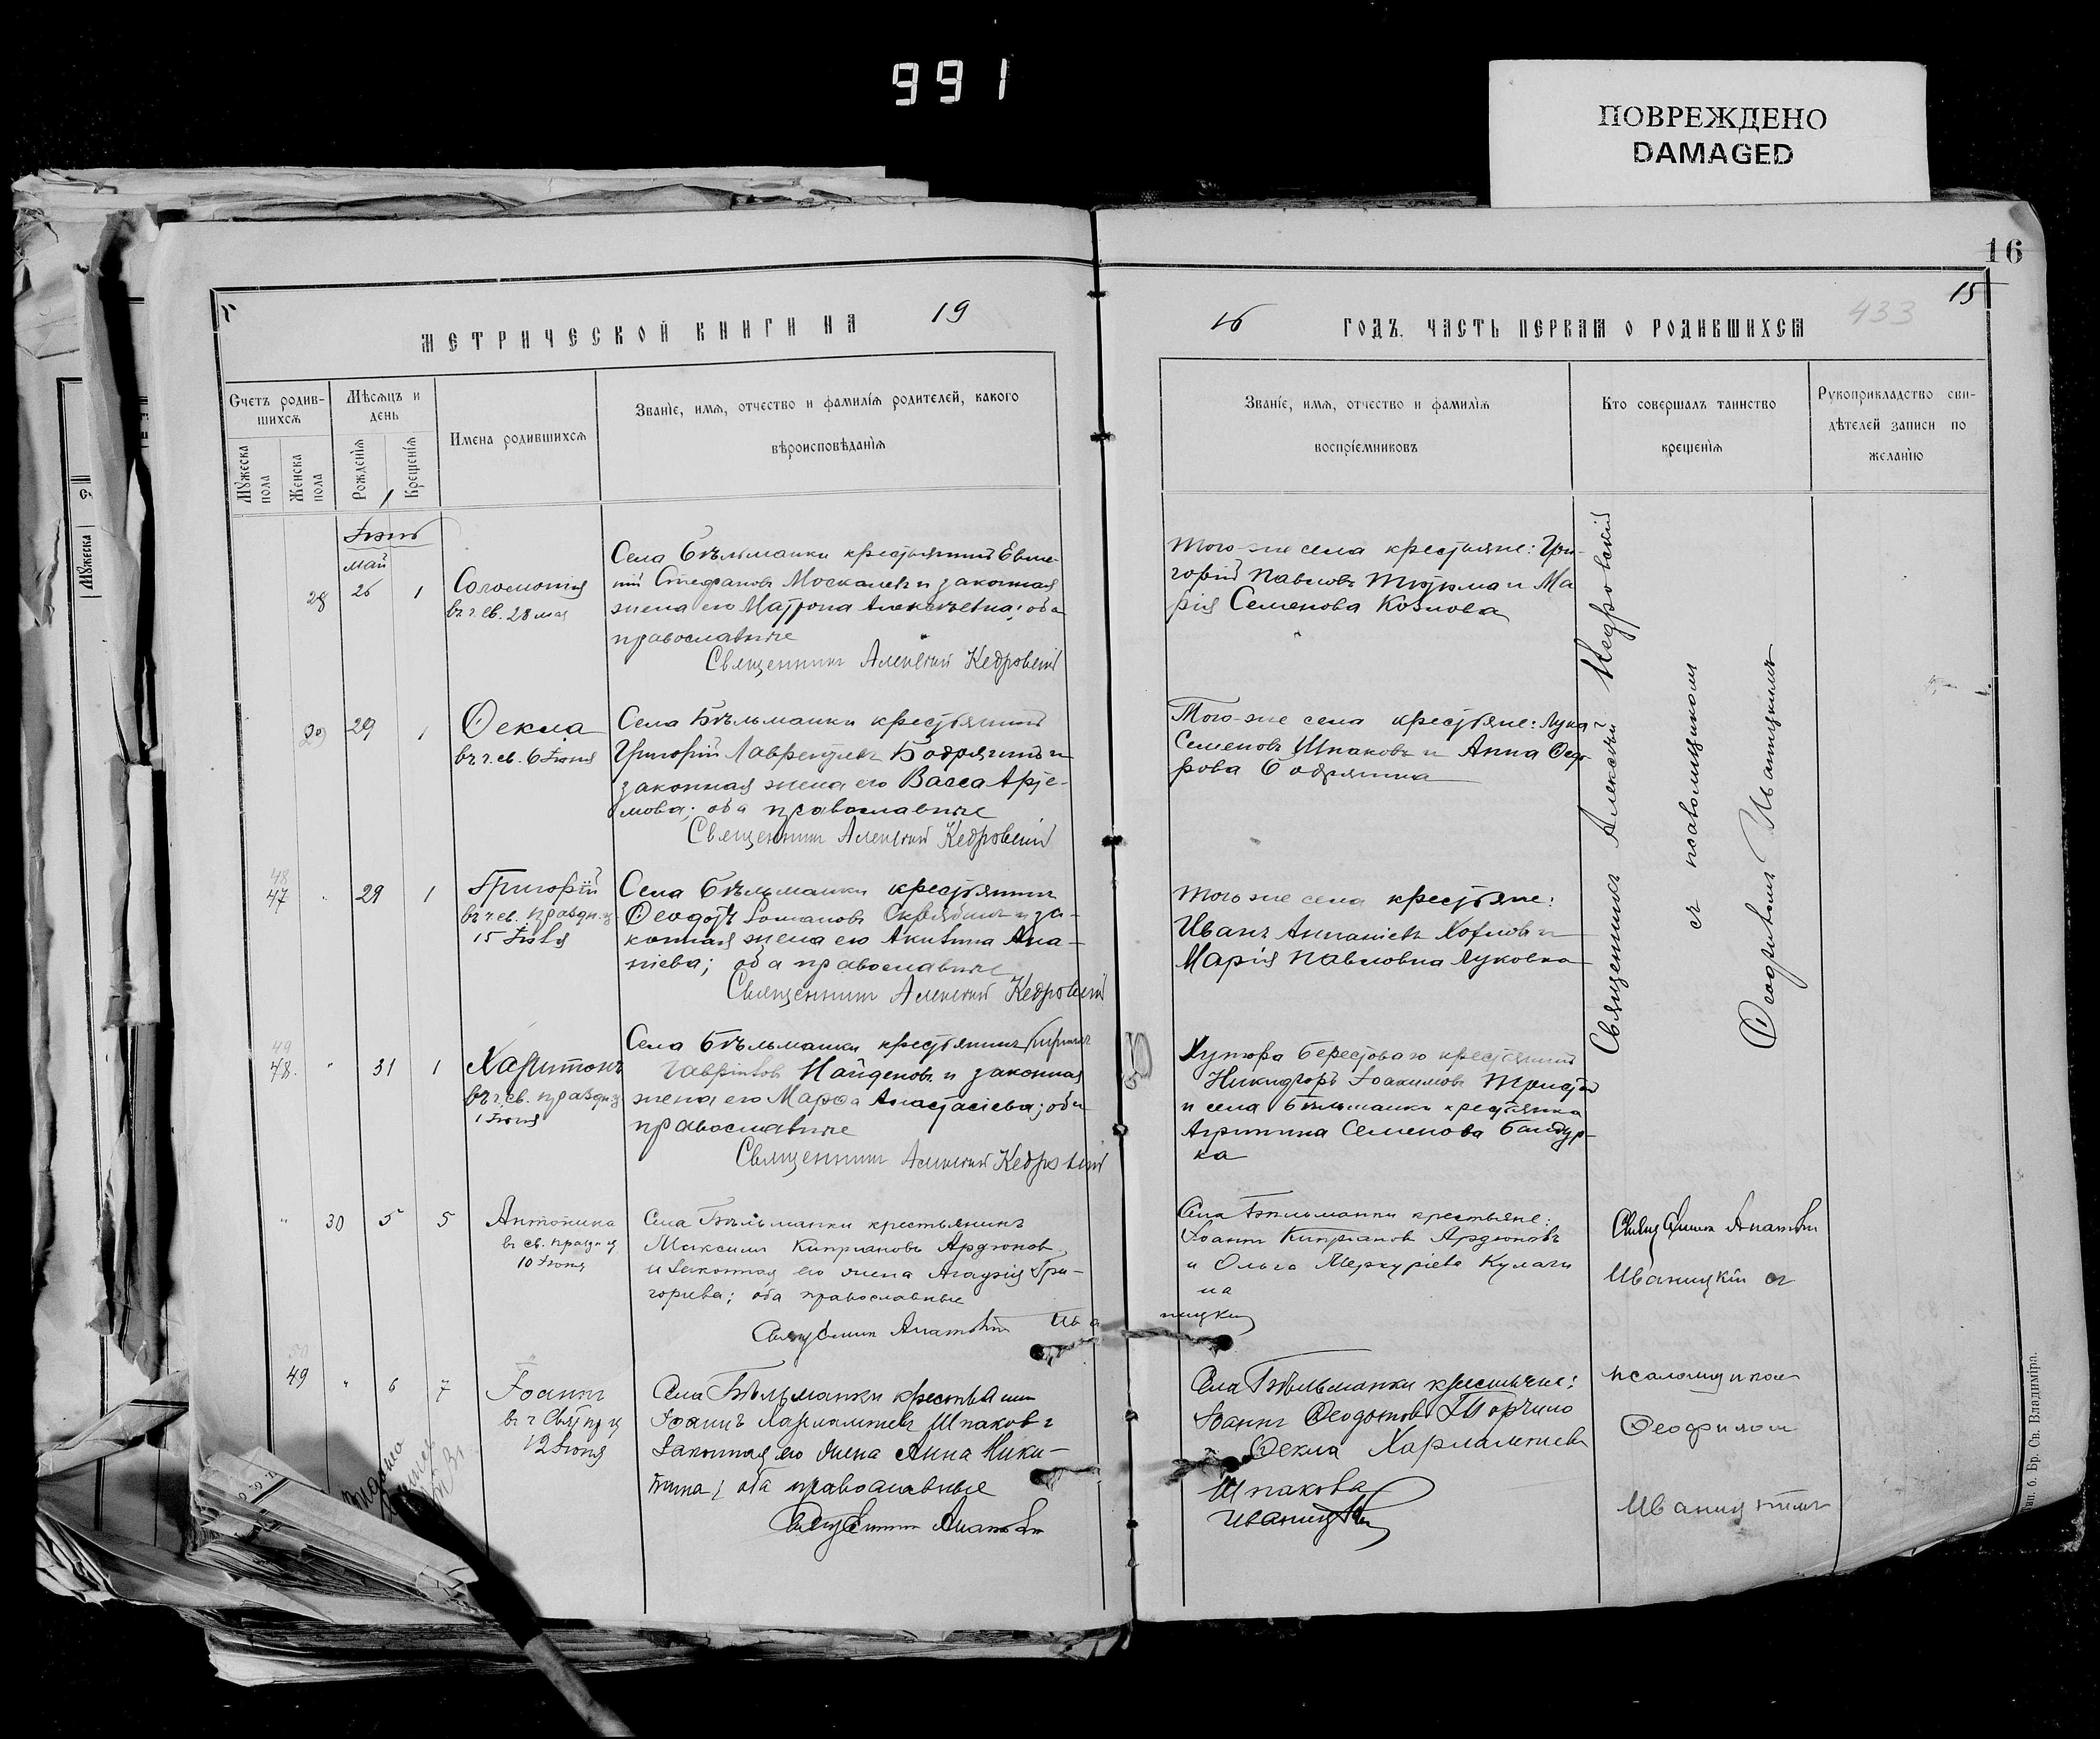 991
ПОВРЕЖДЕНО
DAMAGED
16
15
433
МЕТРИЧЕСКОЙ КНИГИ НА 19
16 ГОДЪ, ЧАСТЬ ПЕРВАЯ О РОДИВШИХСЯ
Счетъ родив-
шихся
Мужеска
пола
Женска
пола
Мѣсяцъ и
день
Рожденія
Крещенія
Имена родившихся
Званіе, имя, отчество и фамилія родителей, какого
вѣроисповѣданія
Званіе, имя, отчество и фамилія
воспріемниковъ
Кто совершалъ таинство
крещенія
Рукоприкладство сви-
дѣтелей записи по
желанію
Мужеска
Іюнь
май
28
26
1
Соломонія
въ ч. св. 28 мая
Села Бѣльманки крестьянинъ Евме-
ній Стефановъ Москалевъ и законная
жена его Матрона Алексѣевна; оба
православные
Священникъ Алексій Кедровскій
Того-же села крестьяне: Гри-
горій Павловъ Тюрма и Ма
рія Семенова Козлова
29
29
1
Ѳекла
въ ч. св. 6 Іюня
Села Бѣльманки крестьянинъ
Григорій Лаврентіевъ Бодрягинъ и
законная жена его Васса Арте-
мова; оба православные
Священникъ Алексій Кедровскій
Того-же села крестьяне: Лука
Семеновъ Шпаковъ и Анна Ѳедо
рова Бодрягина
48
47
29
1
Григорій
въ ч. св. праздн.
15 Іюня
Села Бѣльманки крестьянинъ
Ѳеодотъ Романовъ Скрябинъ и за-
конная жена его Акилина Ана-
ніева; оба православные
Священникъ Алексій Кедровскій
Того же села крестьяне:
Иванъ Ананіевъ Котловъ и
Марія Павловна Луковка
49
48.
31
1
Харитонъ
въ ч. св. праздн.
1 Іюня
Села Бѣльманки крестьянинъ Кириллъ
Гавріиловъ Найденовъ и законная
жена его Марѳа Анастасіева; оба
православные
Священникъ Алексій Кедровскій
Хутора Берестоваго крестьянинъ
Никифоръ Іоакимовъ
и села Бѣльманки крестьянка
Агрипина Семенова Бандур-
ка
Священникъ Алексій Кедровскій
съ псаломщикомъ
Ѳеофиломъ Иваницкимъ
30
5
5
Антонина
въ св. праздн.
10 Іюня
Села Бѣльманки крестьянинъ
Максимъ Кипріановъ Ардюковъ
и законная его жена Агафія Гри-
горіева; оба православные
Священникъ Анатолій Ива
ницкій
Села Бѣльманки крестьяне:
Іоаннъ Кипріановъ Ардюковъ
и Ольга Меркуріева Кулаги
на
Священникъ Анатолій
Иваницкій съ
50
49
6
7
Іоаннъ
12 Іюня
Села Бѣльманки крестьянинъ
Іоаннъ Харлампіевъ Шпаковъ и
законная его жена Анна Ники-
тина; оба православные
Священникъ Анатолій
Иваницкій
Села Бѣльманки крестьяне:
Іоаннъ Ѳеодотовъ
Ѳекла Харлампіева
Шпакова
псаломщикомъ
Ѳеофиломъ
Иваницкимъ
Тип. б. Бр. Св. Владиміра.